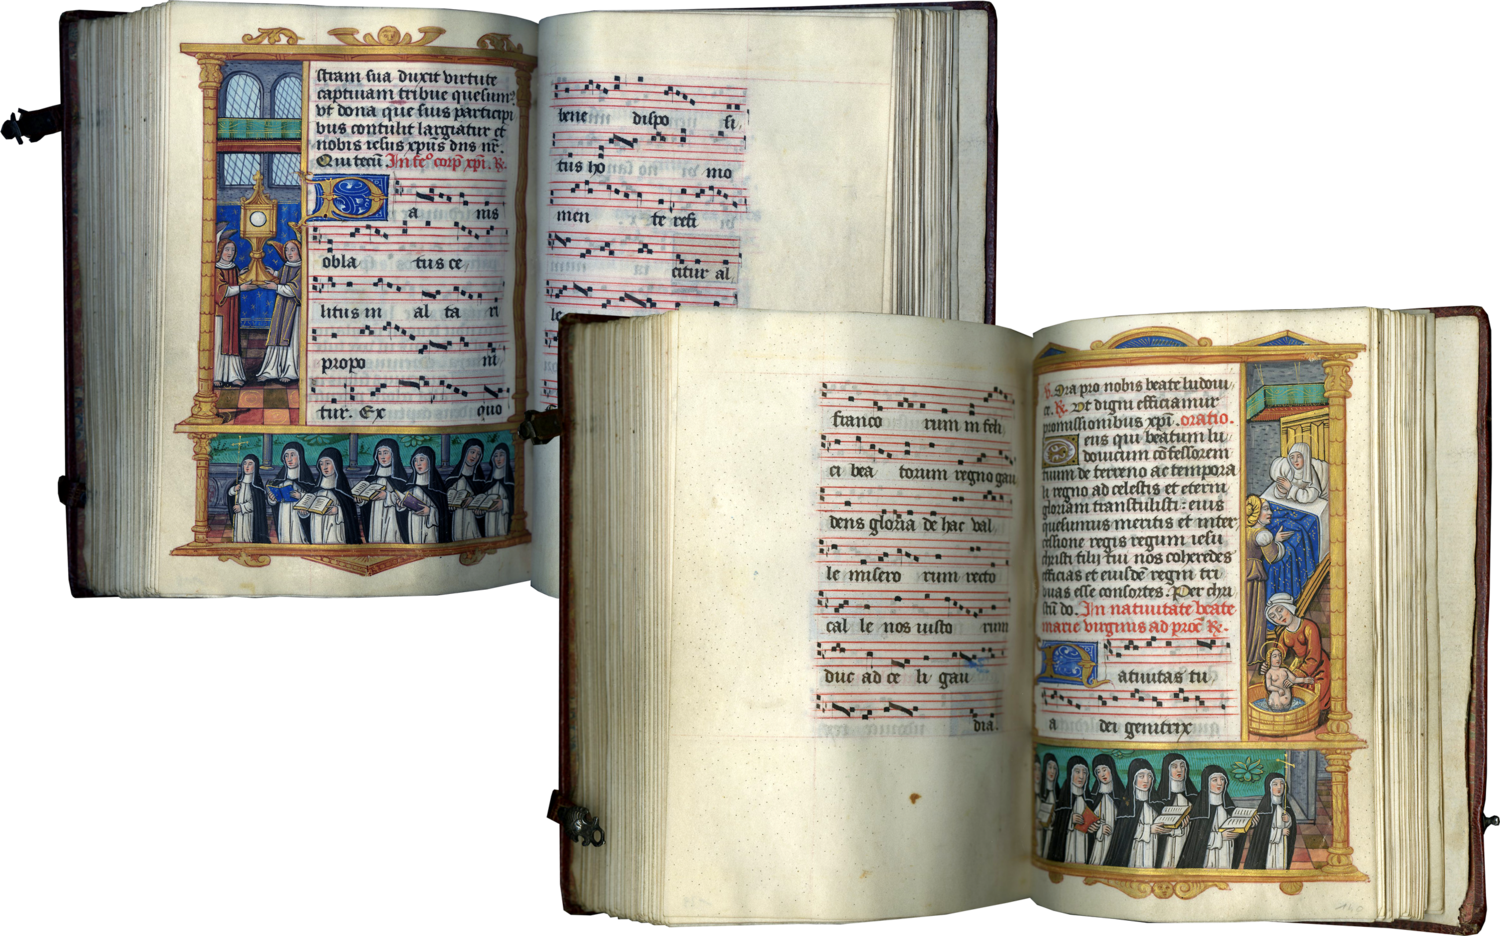 stram sua duxit virtute
captiuam tribue quesum⁹
vt dona que suis participi
bus contulit largiatur et
nobis iesus xp̄us dns nr̄.
Qui tecū In fe° corp̄ xp̄i. R.
Panis
obla tus ce
litus in al ta ri
propo ni
tur. Ex quo
bene dispo si
tus ho mo
men te refi
citur al
le
franco rum in feli
ci bea torum regno gau
dens gloria de hac val
le misero rum recto
cal le nos iusto rum
duc ad ce li gau
dia.
V. Ora pro nobis beate ludoui
ce. R. Vt digni efficiamur
promissionibus xp̄i. oratio.
Deus qui beatum lu
douicum cōfessorem
tuum de terreno ac tempora
li regno ad celestis et eterni
gloriam transtulisti: eius
quesumus meritis et inter
cessione regis regum iesu
christi filii tui nos coheredes
efficias et eiusdē regni tri
buas esse consortes. Per chri
stū do. In natiuitate beate
marie virginis ad proc̄ R.
Natiuitas tu
a dei genitrix
140